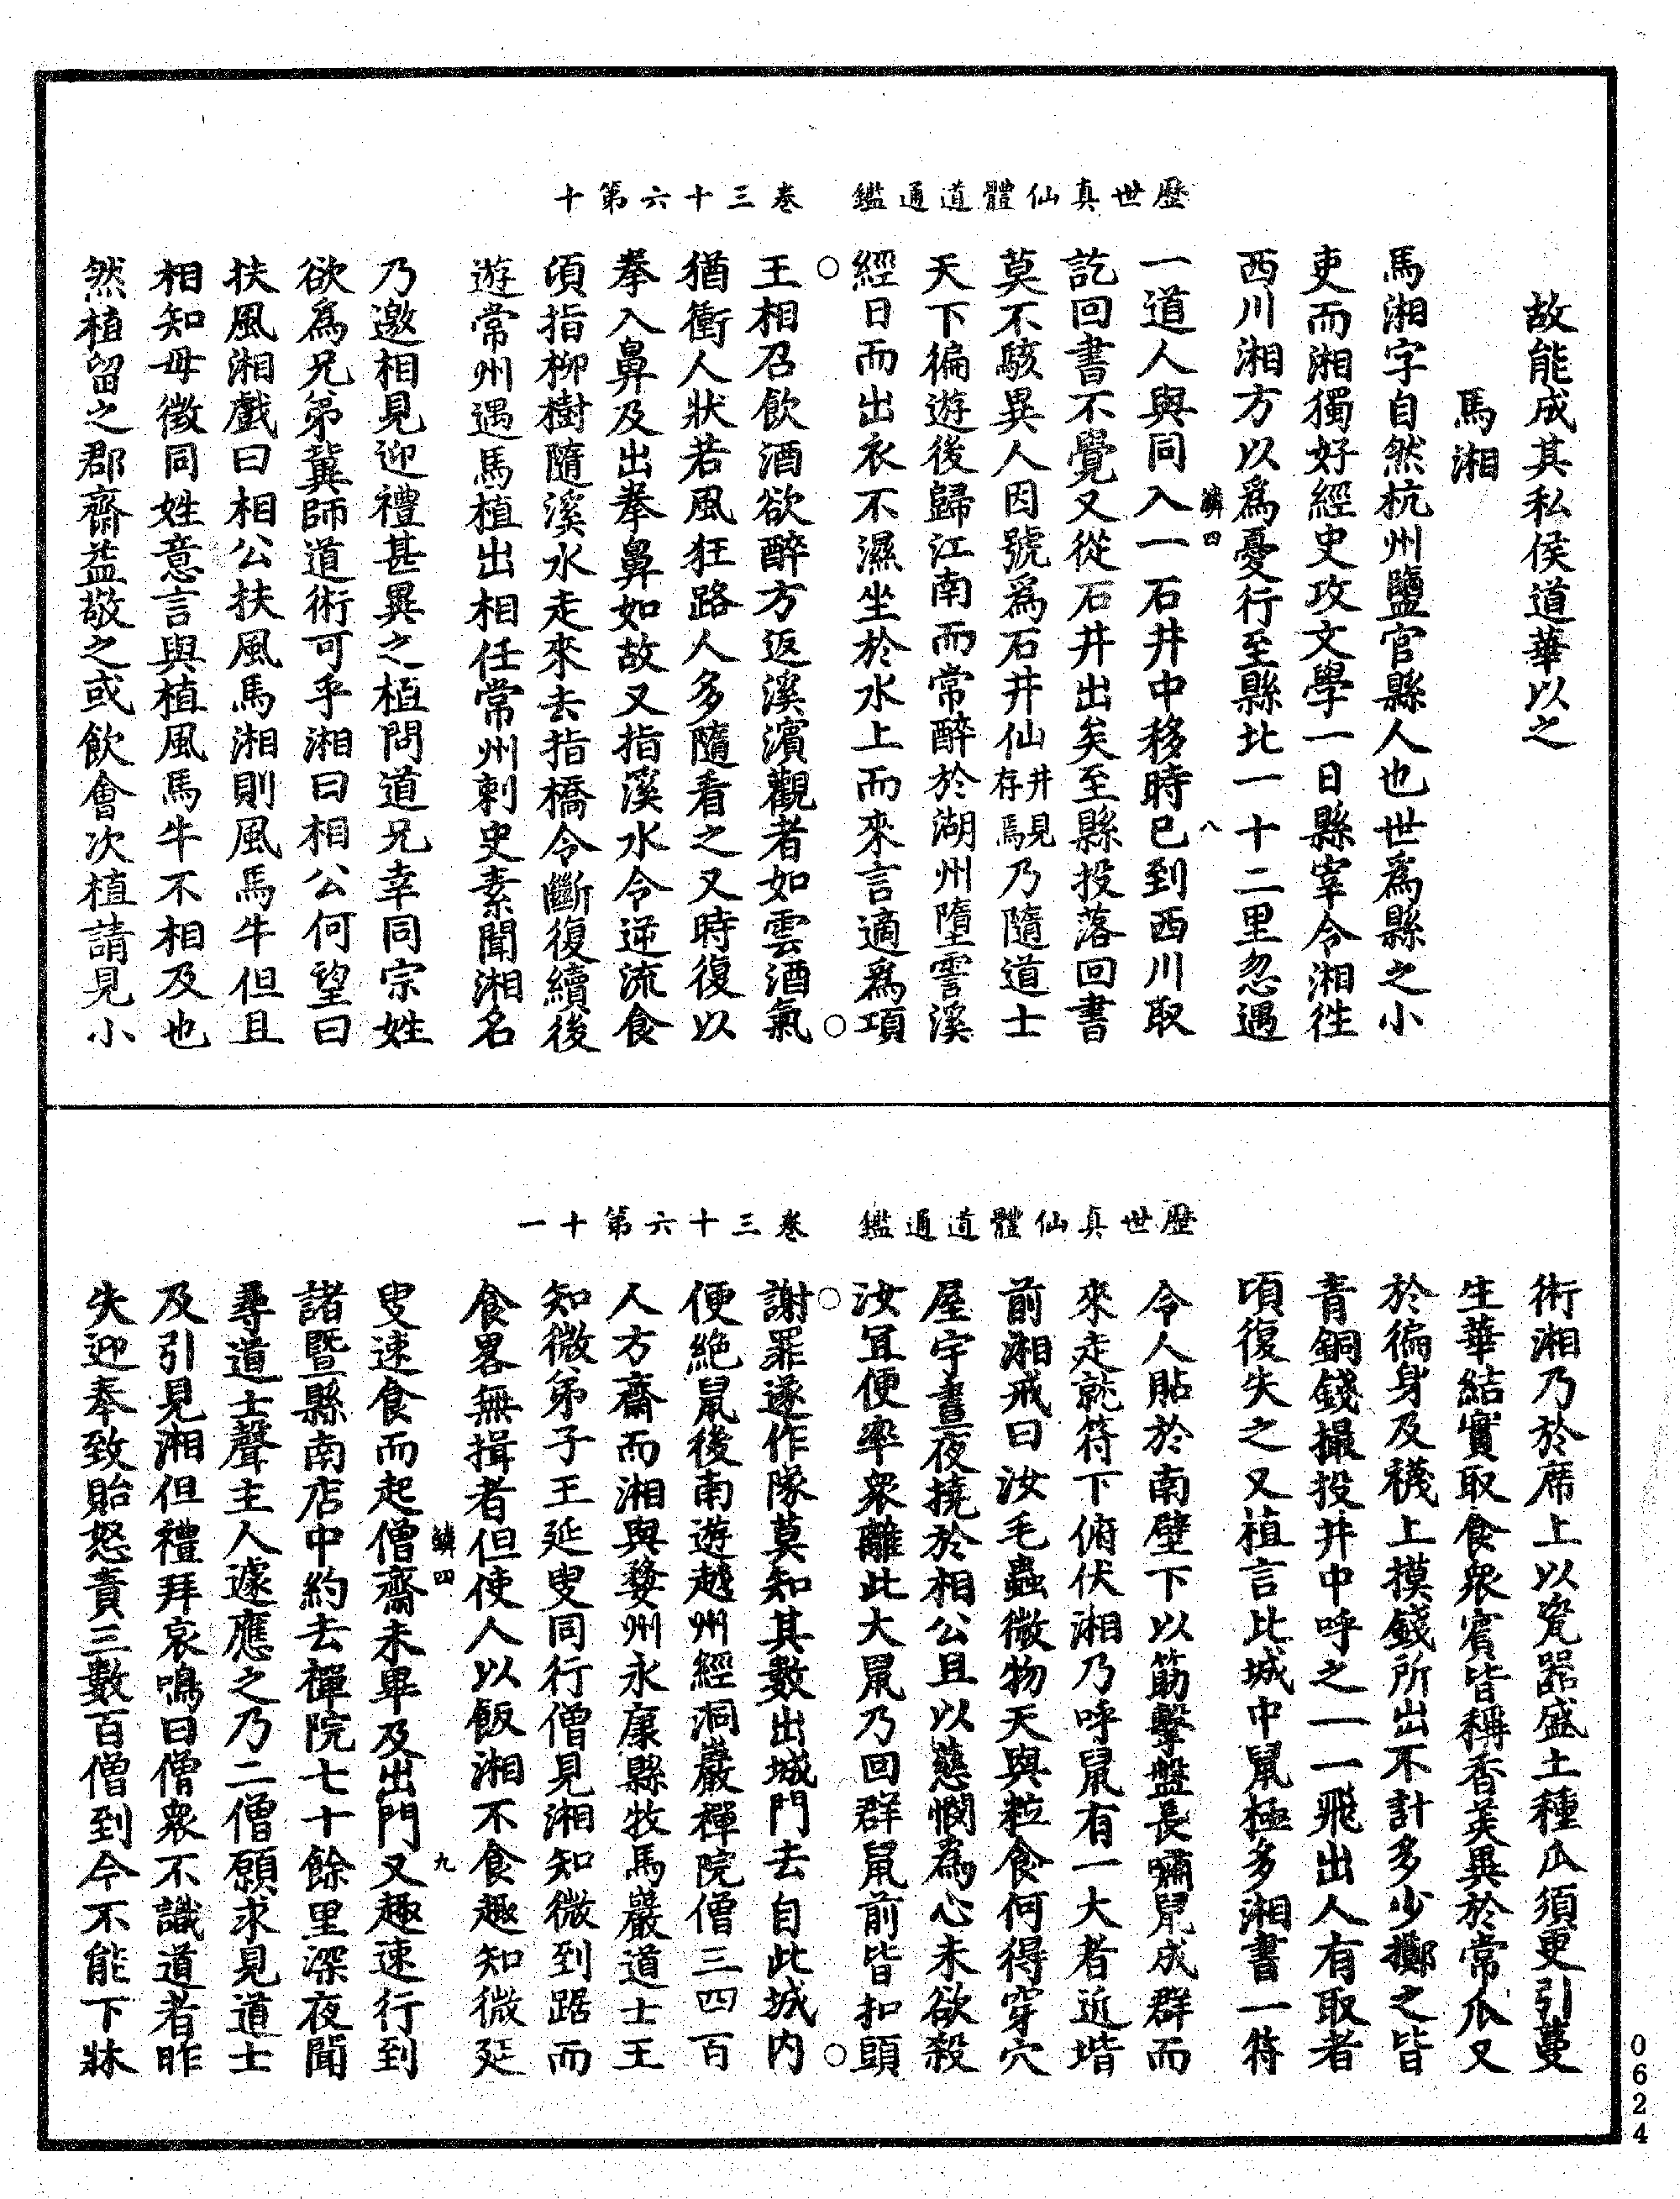 歷世真仙體道通鑑　卷三十六第十
故能成其私侯道華以之
馬湘
馬湘字自然杭州鹽官縣人也世爲縣之小
吏而湘獨好經史攻文學一日縣宰令湘徃
西川湘方以爲憂行至縣北一十二里忽遇
鱗四　八
一道人與同入一石井中移時已到西川取
訖回書不覺又從石井出矣至縣投落回書
莫不駭異人因號爲石井仙井見存焉乃隨道士
天下徧遊後歸江南而常醉於湖州墮霅溪
經日而出衣不濕坐於水上而來言適爲項
王相召飲酒欲醉方返溪濱觀者如雲酒氣
猶衝人狀若風狂路人多隨看之又時復以
拳入鼻及出拳鼻如故又指溪水令逆流食
頃指柳樹隨溪水走來去指橋令斷復續後
遊常州遇馬植出相任常州刺史素聞湘名
乃邀相見迎禮甚異之植問道兄幸同宗姓
欲爲兄弟冀師道術可乎湘曰相公何望曰
扶風湘戲曰相公扶風馬湘則風馬牛但且
相知毋徵同姓意言與植風馬牛不相及也
然植留之郡齋益敬之或飲會次植請見小
歷世真仙體道通鑑　卷三十六第十一
術湘乃於席上以瓷器盛土種瓜須更引蔓
生華結實取食衆賓皆稱香美異於常瓜又
於徧身及襪上摸錢所出不計多少擲之皆
青銅錢撮投井中呼之一一飛出人有取者
頃復失之又植言此城中鼠極多湘書一符
令人貼於南壁下以筋擊盤長嘯鼠成群而
來走就符下俯伏湘乃呼鼠有一大者近堦
前湘戒曰汝毛蟲微物天與粒食何得穿穴
屋宇晝夜撓於相公且以慈憫為心未欲殺
汝冝便率衆離此大鼠乃回群鼠前皆扣頭
謝罪遂作隊莫知其數出城門去自此城内
便絶鼠後南遊越州經洞巖禪院僧三四百
人方齋而湘與婺州永康縣牧馬巖道士王
知微弟子王延叟同行僧見湘知微到踞而
食畧無揖者但使人以飯湘不食趣知微延
鱗四　九
叟速食而起僧齋未畢及出門又趣速行到
諸暨縣南店中約去禪院七十餘里深夜聞
尋道士聲主人遽應之乃二僧願求見道士
及引見湘但禮拜哀鳴曰僧衆不識道者昨
失迎奉致貽怒責三數百僧到今不能下牀
0624